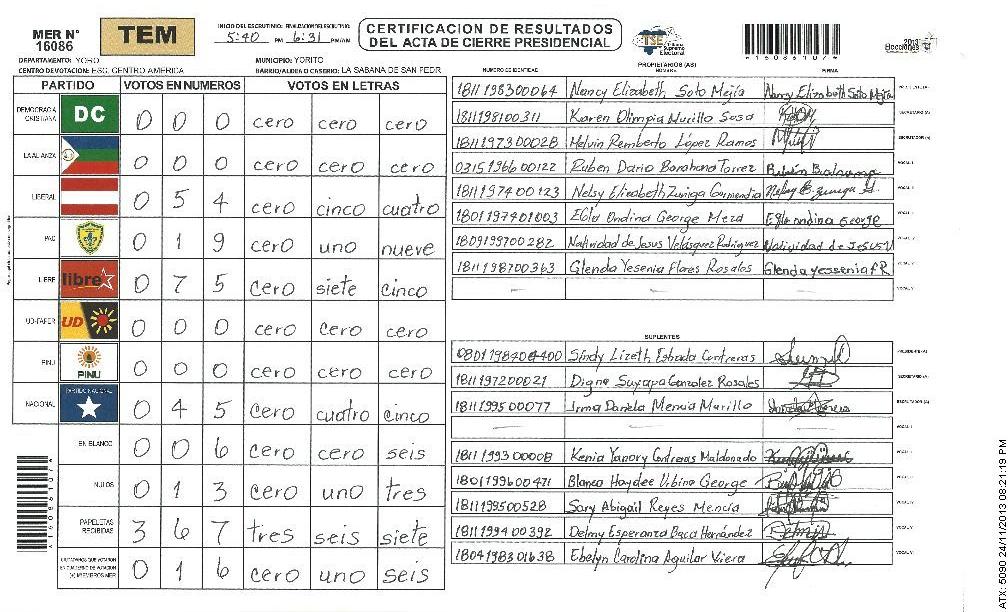 MER N° 16086
TEM
INICIO DEL ESCRUTINIO: FINALIZACION DEL ESCRUTINIO:
5:40 PM 6:31 PM/AM
CERTIFICACION DE RESULTADOS
DEL ACTA DE CIERRE PRESIDENCIAL
TSE Tribunal Supremo Electoral
DEPARTAMENTO: YORO
MUNICIPIO: YORITO
CENTRO DE VOTACION: ESC. CENTRO AMERICA
BARRIO/ALDEA O CASERIO: LA SABANA DE SAN PEDR
PARTIDO VOTOS EN NUMEROS VOTOS EN LETRAS
DEMOCRACIA CRISTIANA DC 0 0 0 cero cero cero
LA ALIANZA 0 0 0 cero cero cero
LIBERAL 0 5 4 cero cinco cuatro
PAC 0 1 9 cero uno nueve
LIBRE libre 0 7 5 cero siete cinco
UD-FAPER UD 0 0 0 cero cero cero
PINU PINU 0 0 0 cero cero cero
NACIONAL PARTIDO NACIONAL 0 4 5 cero cuatro cinco
EN BLANCO 0 0 6 cero cero seis
NULOS 0 1 3 cero uno tres
PAPELETAS RECIBIDAS 3 6 7 tres seis siete
CIUDADANOS QUE VOTARON EN CUADERNO DE VOTACION (+) MIEMBROS MER 0 1 6 cero uno seis
PROPIETARIOS (AS)
NUMERO DE IDENTIDAD NOMBRE FIRMA
1811198300064 Nancy Elizabeth Soto Mejía Nancy Elizabeth Soto Mejía
1811198100311 Karen Olimpia Murillo Sosa
1811197300028 Melvin Remberto López Ramos
0315196600122 Ruben Dario Barahona Torrez
1811197400123 Nelsy Elizabeth Zuniga Garmendia
1801197401003 Egla Ondina George Meza Egla ondina George
1809199700282 Natividad de Jesus Velásquez Rodriguez Natividad de Jesus V
1811198700363 Glenda Yesenia Flores Rosales Glenda yessenia F R
SUPLENTES
0801198404400 Sindy Lizeth Estrada Contreras
1811197200021 Digna Suyapa Gonzalez Rosales
1811199500077 Irma Daniela Mencia Murillo
1811199300008 Kenia Yanory Contreras Maldonado
1801199600471 Blanca Haydee Urbina George
1811199500528 Sary Abigail Reyes Mencia
1811199400392 Delmy Esperanza Baca Hernández
1804198301638 Ebelyn Carolina Aguilar Viera
ATX: 5090 24/11/2013 08:21:19 PM